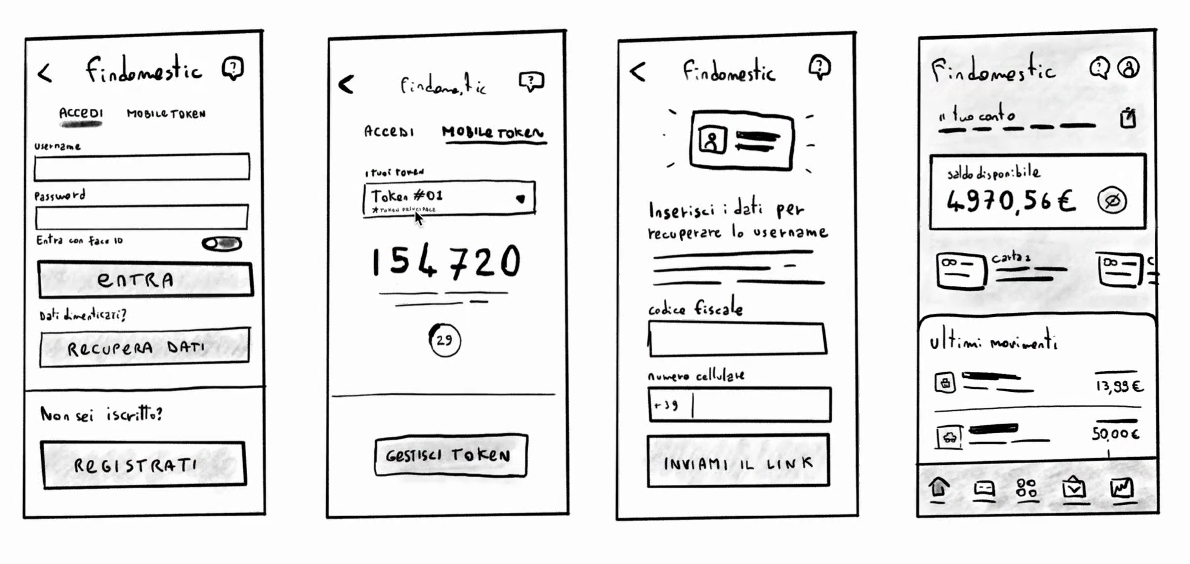 Findomestic
ACCEDI MOBILE TOKEN
Username
Password
Entra con face ID
ENTRA
Dati dimenticati?
RECUPERA DATI
Non sei iscritto?
REGISTRATI
Findomestic
ACCEDI MOBILE TOKEN
I tuoi token
Token #01
*TOKEN PRINCIPALE
154720
29
GESTISCI TOKEN
Findomestic
Inserisci i dati per
recuperare lo username
codice fiscale
numero cellulare
+39
INVIAMI IL LINK
Findomestic
il tuo conto
saldo disponibile
4970,56 €
carta 1
C
Ultimi movimenti
13,99 €
50,00 €